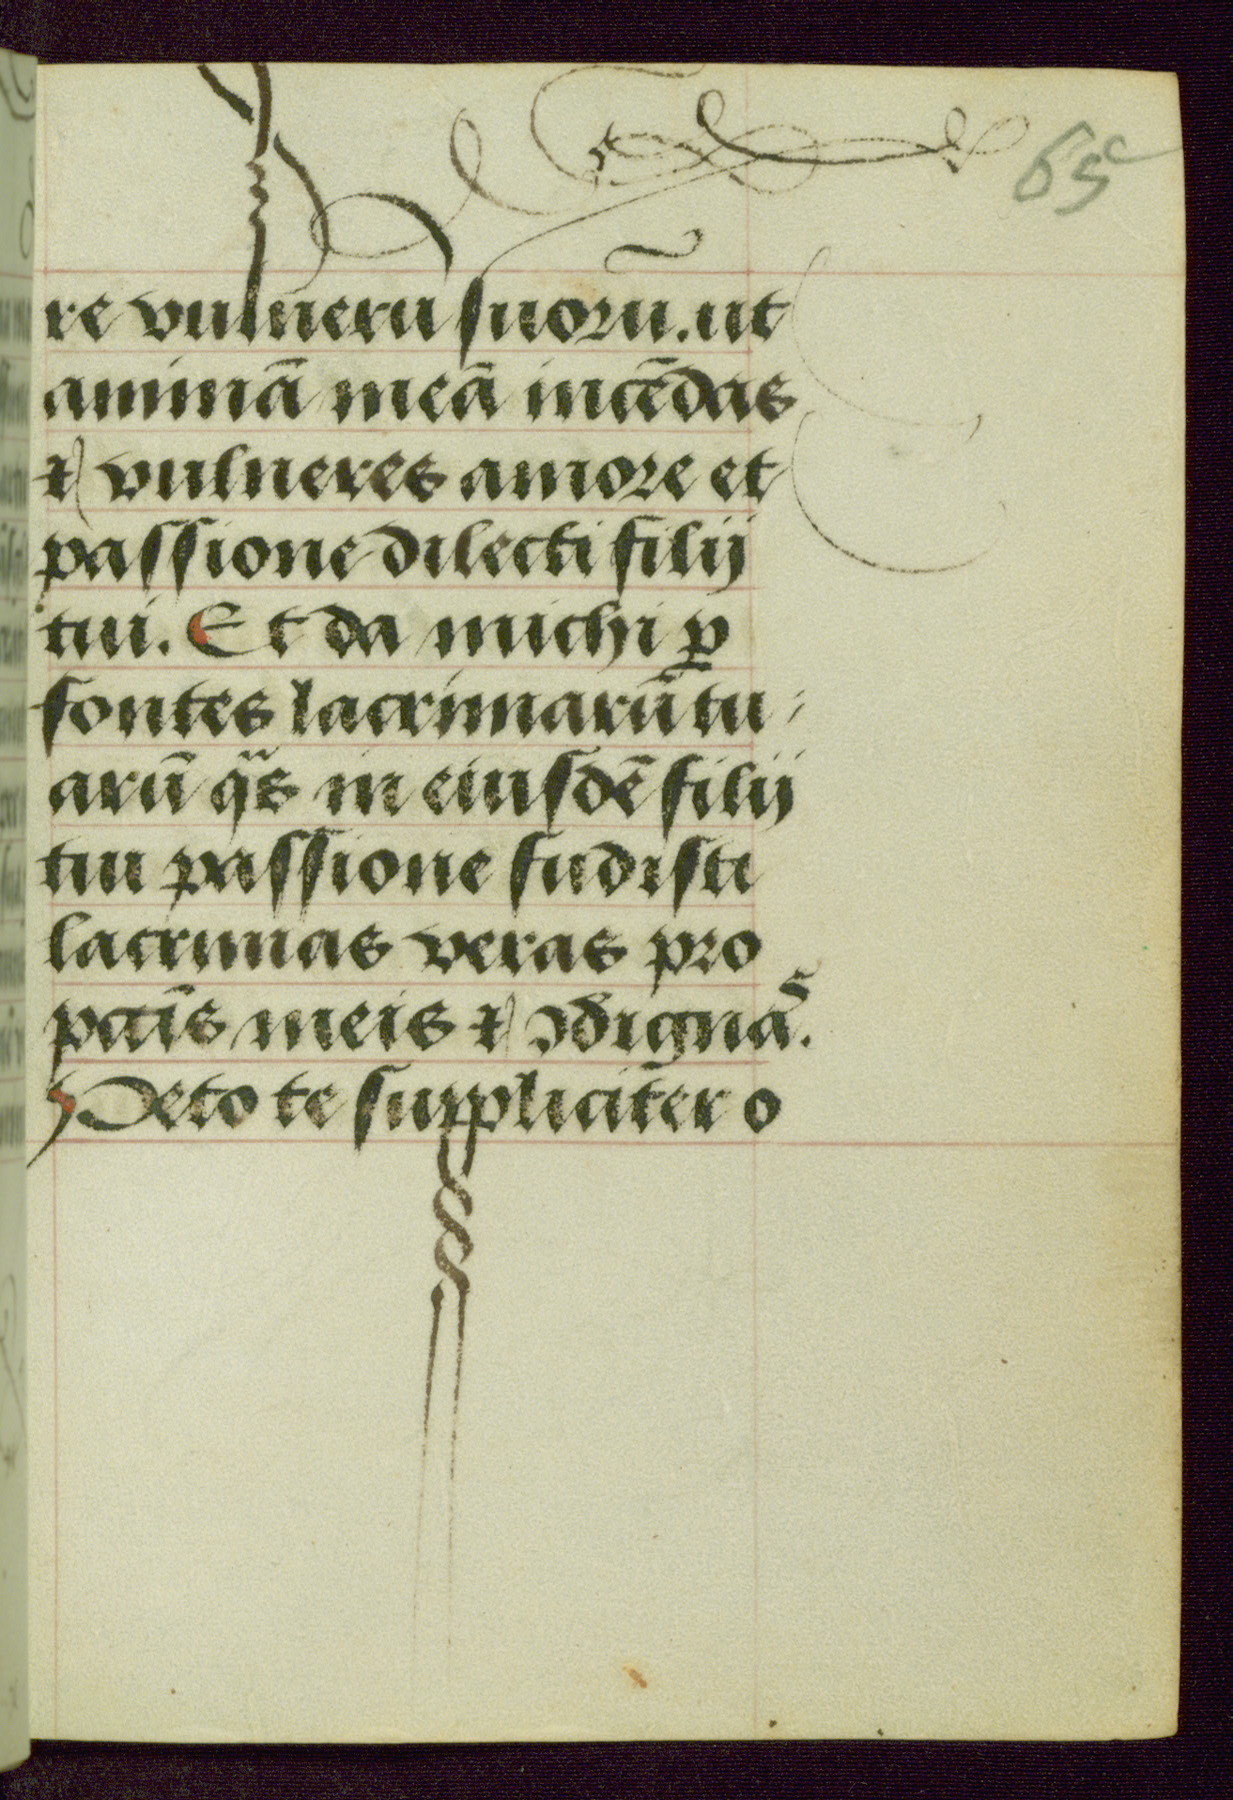 65c
re vulneru suorū. ut
animā meā incēdas
⁊ vulneres amore et
passione dilecti filij
tui. Et da michi ꝑ
fontes lacrimarū tu
arū qᵃs in eiusdē filij
tui passione fudisti
lacrimas veras pro
pctīs meis ⁊ ꝯdignās.
Peto te suppliciter o